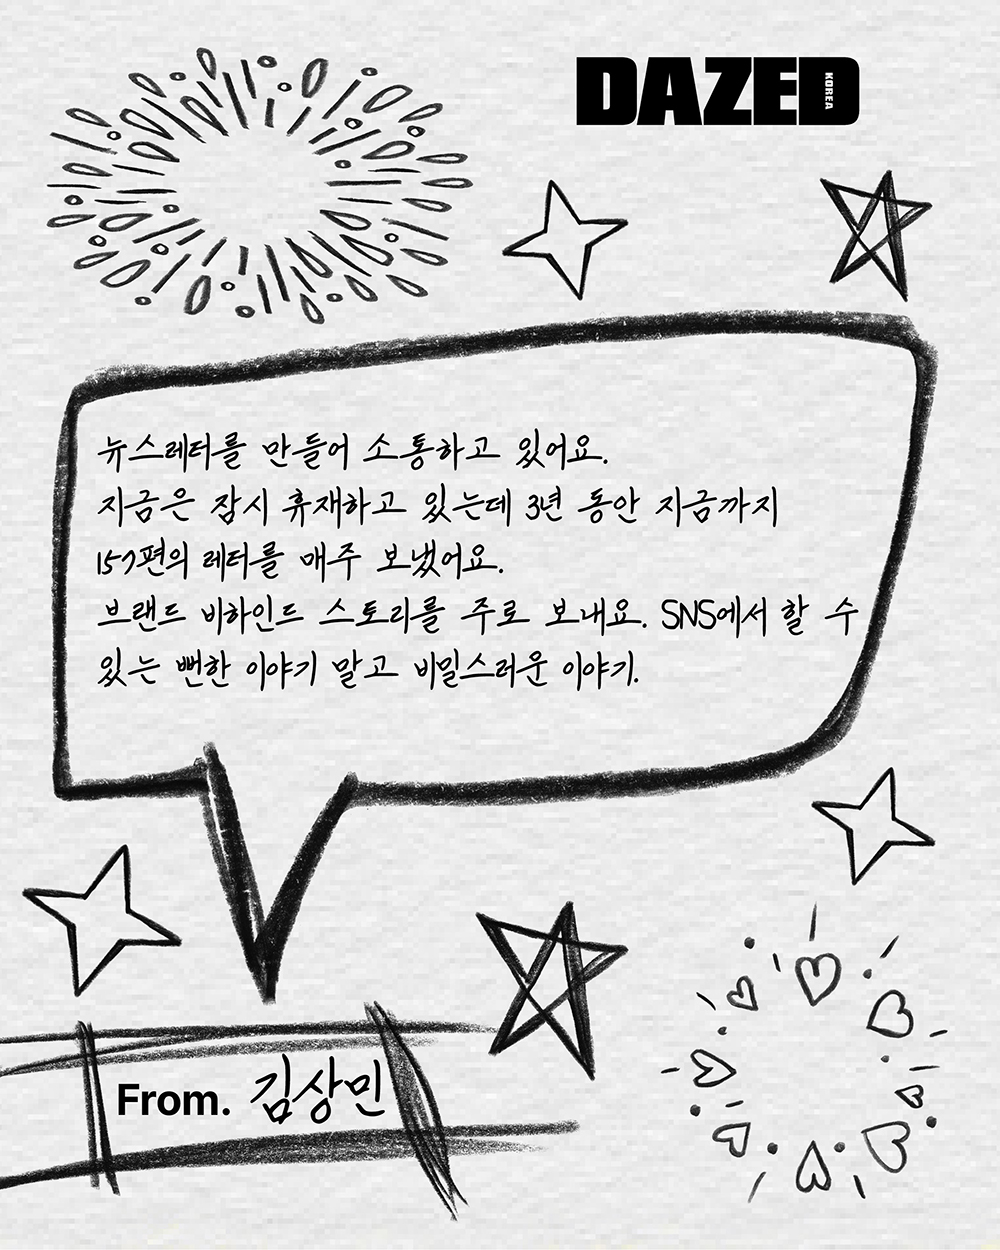 DAZED
KOREA
뉴스레터를 만들어 소통하고 있어요.
지금은 잠시 휴재하고 있는데 3년 동안 지금까지
157편의 레터를 매주 보냈어요.
브랜드 비하인드 스토리를 주로 보내요. SNS에서 할 수
있는 뻔한 이야기 말고 비밀스러운 이야기.
From. 김상민